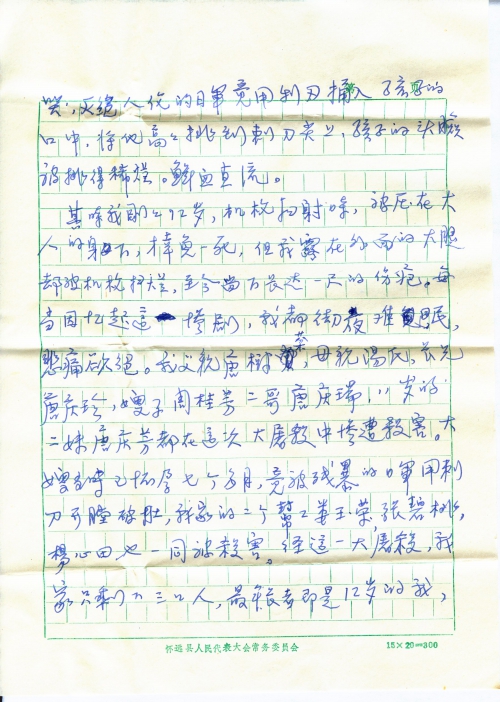 哭，灭绝人伦的日军竟用刺刀捅入孩子的
口中，将他高高挑到刺刀尖上，孩子的头脸
被挑得稀烂。鲜血直流。
其时我刚刚12岁，机枪扫射时，被压在大
人的身下，幸免一死，但我露在外面的大腿
却被机枪打烂，至今留下长达一尺的伤疤。每
当回忆起这惨剧，我都彻夜难眠，
悲痛欲绝。我父亲唐树，母亲冯氏，长兄
唐庆珍，嫂子周桂芳二哥唐庆瑞，11岁的
二妹唐庆芳都在这次大屠殺中惨遭殺害。大
嫂当时已怀孕七个多月，竟被残暴的日軍用刺
刀开膛破肚，我家的二个幫工姜玉荣，张碧桃，
楊心田也一同被殺害。经这一大屠殺，我
家只剩下三口人，最年長者即是12岁的我，
怀远县人民代表大会常务委员会
15×20=300